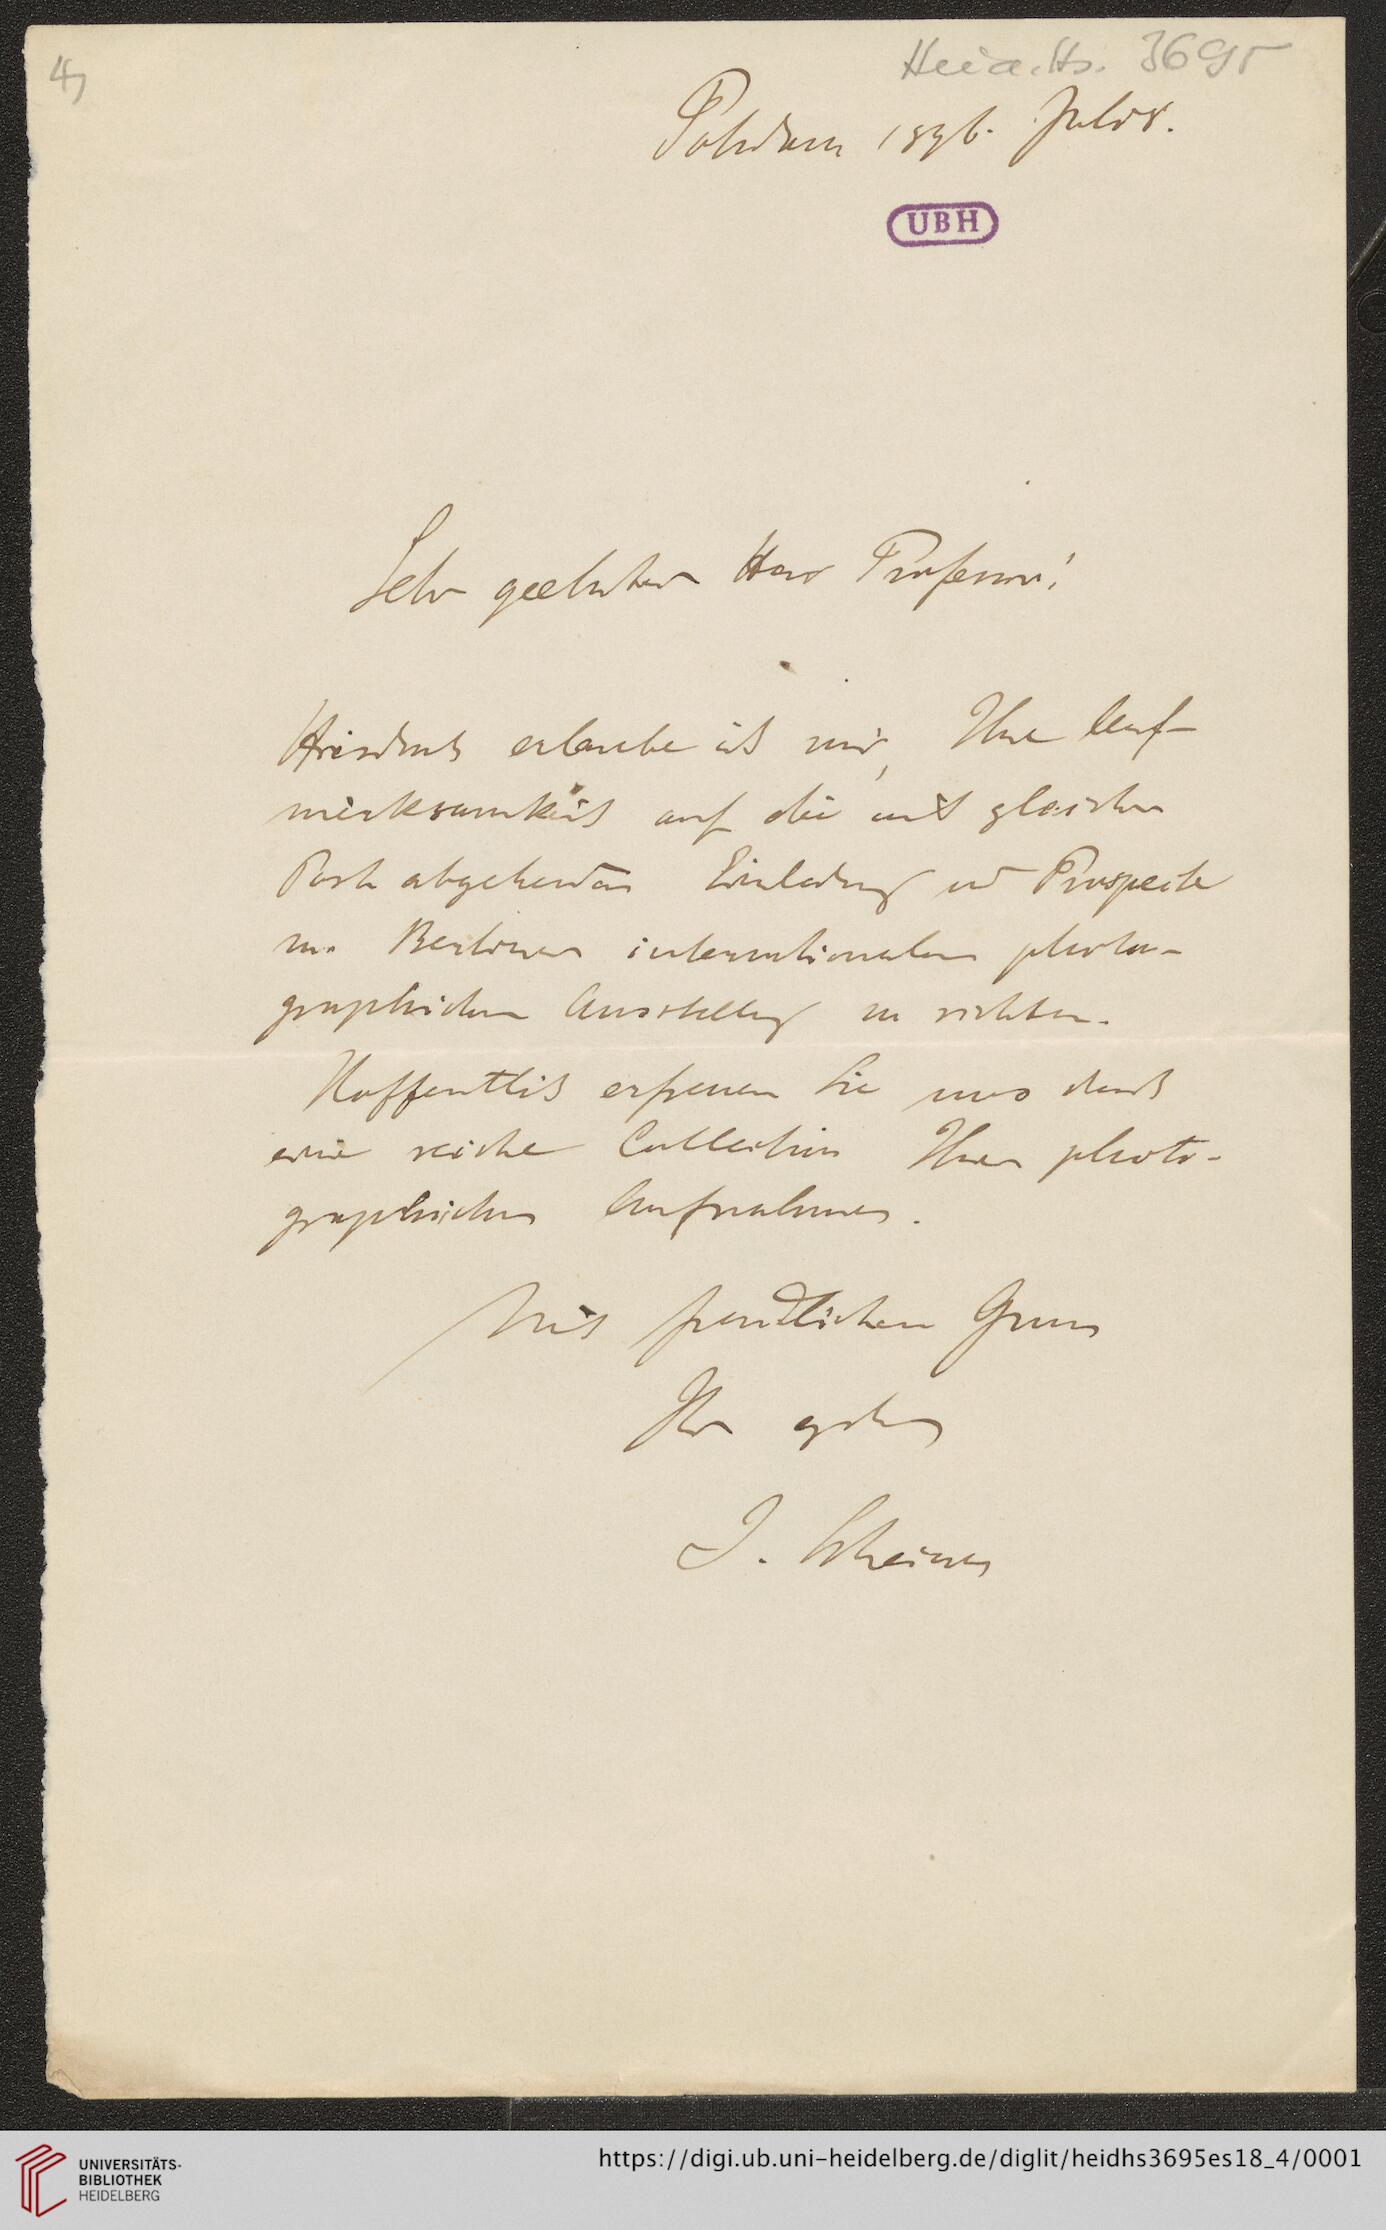 4)
Heid. Hs. 3695
Potsdam 1896. Juli 8.
UBH
Sehr geehrter Herr Professor!
Hierdurch erlaube ich mir, Ihre Auf-
merksamkeit auf die mit gleicher
Post abgehenden Einladung und Prospecte
zur Berliner internationalen photo-
graphischen Ausstellung zu richten.
Hoffentlich erfreuen Sie uns durch
eine reiche Collection Ihrer photo-
graphischen Aufnahmen.
Mit freundlichem Gruss
Ihr
J. Scheiner
UNIVERSITÄTS-
BIBLIOTHEK
HEIDELBERG
https://digi.ub.uni-heidelberg.de/diglit/heidhs3695es18_4/0001